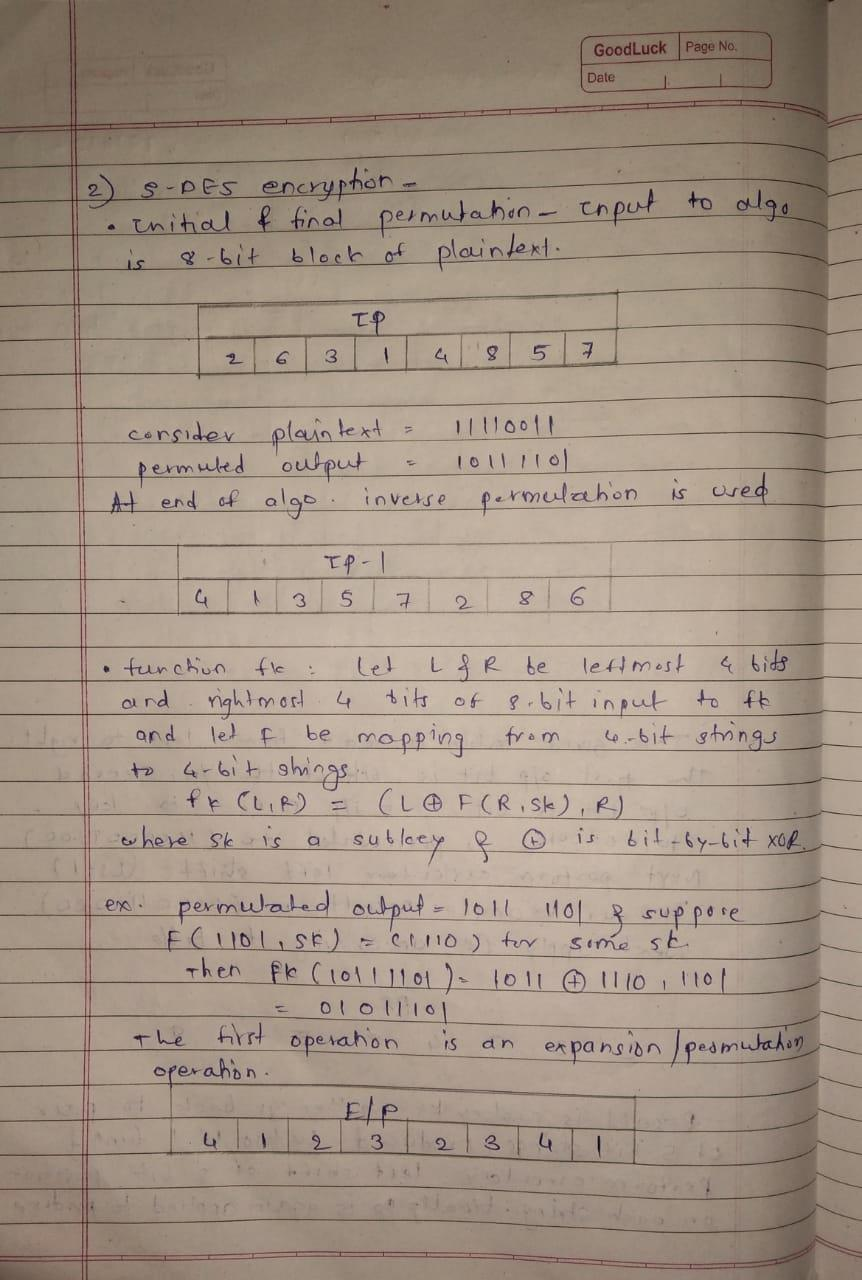 GoodLuck Page No.
Date
2) S-DES encryption -
• Initial & final permutation - Input to algo
is 8-bit block of plaintext.
IP
2 6 3 1 4 8 5 7
consider plaintext = 11110011
permuted output = 10111101
At end of algo. inverse permutation is used
IP-1
4 1 3 5 7 2 8 6
• function fk : Let L & R be leftmost 4 bits
and rightmost 4 bits of 8-bit input to fk
and let F be mapping from 4-bit strings
to 4-bit strings.
fk (L,R) = (L ⊕ F(R, SK), R)
where SK is a subkey & ⊕ is bit-by-bit XOR.
ex. permutated output = 1011 1101 & suppose
F(1101, SK) = (1110) for some SK
Then fk (10111101) = 1011 ⊕ 1110, 1101
= 01011101
The first operation is an expansion/permutation
operation.
E/P
4 1 2 3 2 3 4 1